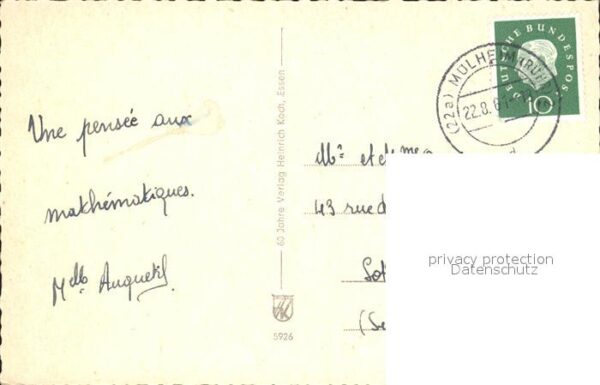 Une pensée aux
mathématiques.
Melle
60 Jahre Verlag Heinrich Koch, Essen
5926
DEUTSCHE BUNDESPOST
10
(22a) MÜLHEIM (RUHR
22.8.6
Mr et
43 rue d
privacy protection
Datenschutz